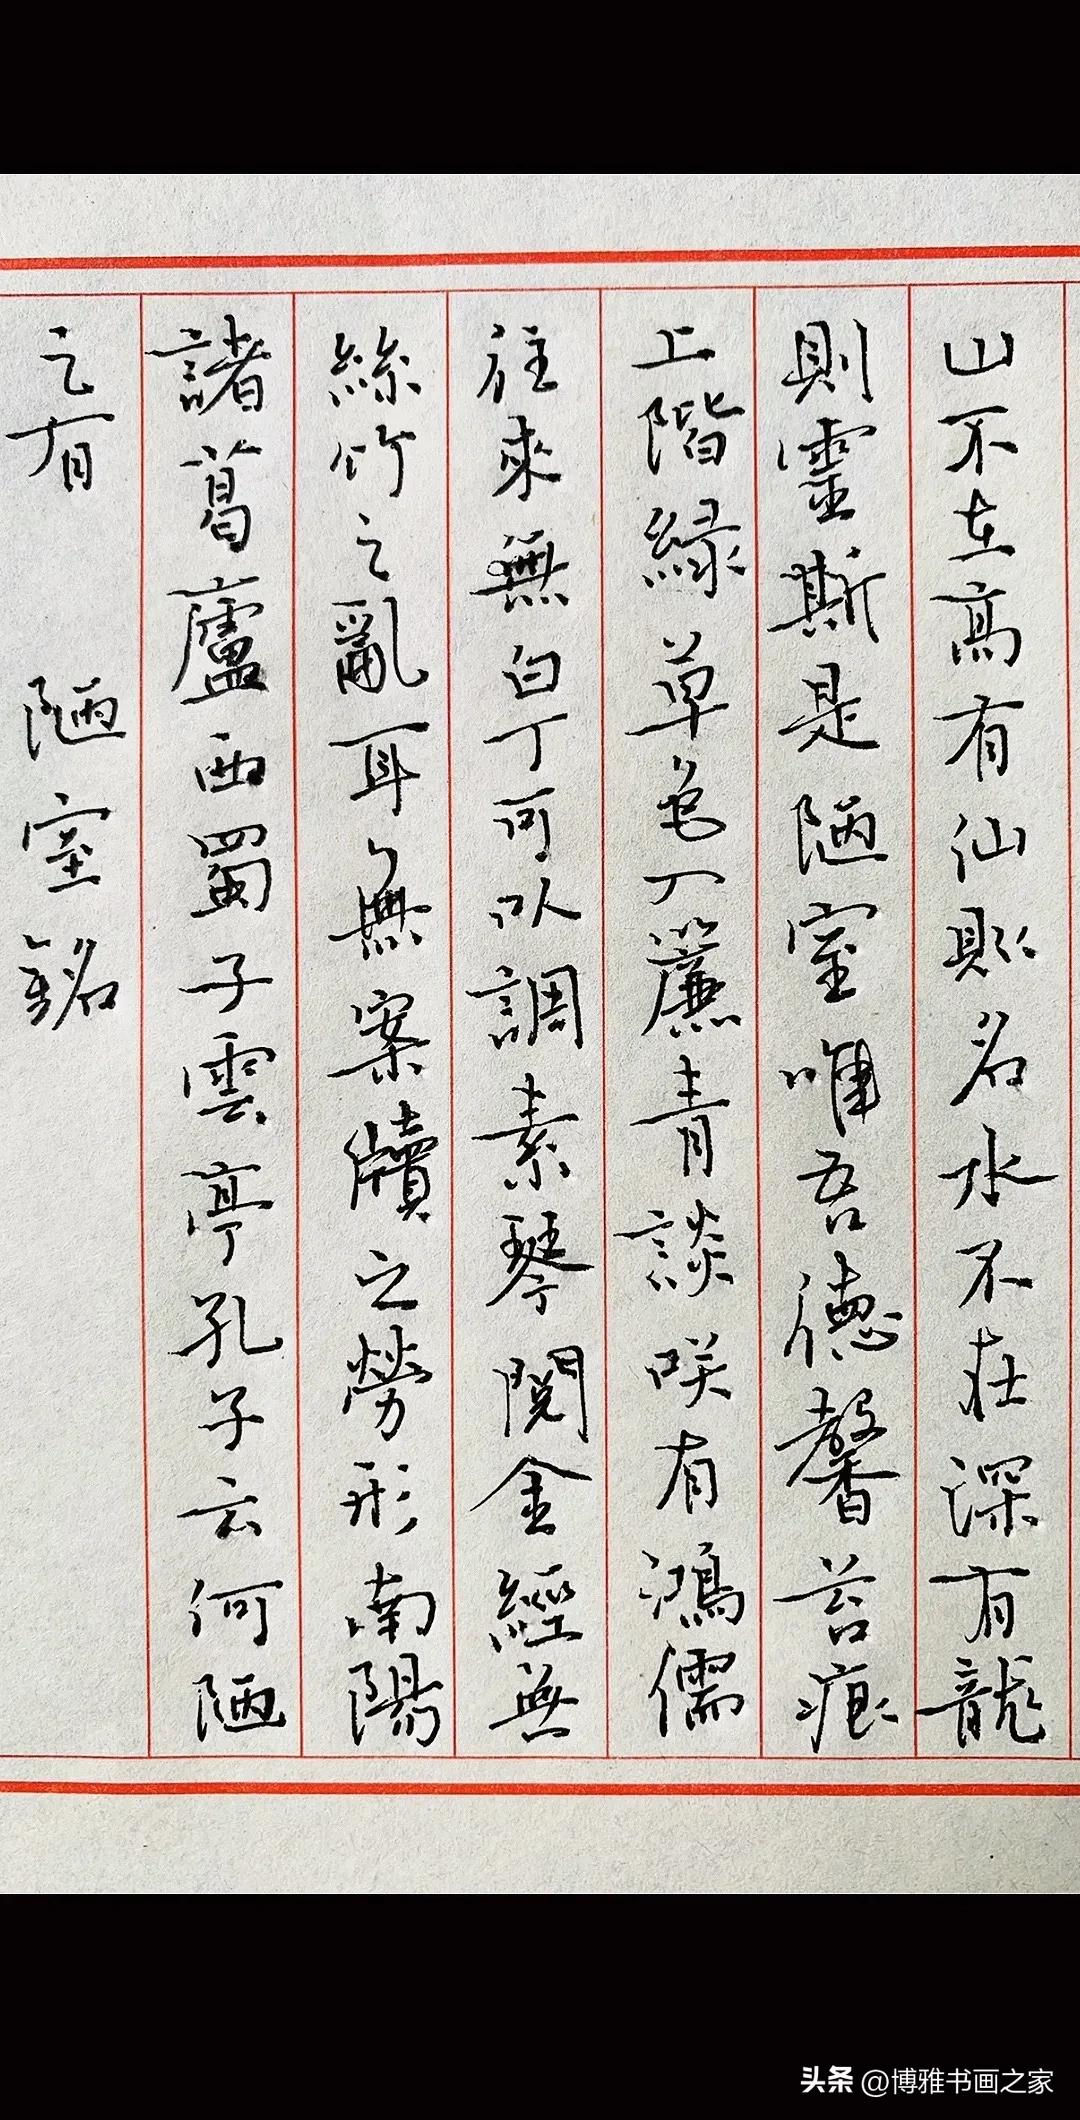 山不在高有仙則名水不在深有龍
則靈斯是陋室唯吾德馨苔痕
上階緑草色入簾青談咲有鴻儒
往來無白丁可以調素琴閱金經無
絲竹之亂耳無案牘之勞形南陽
諸葛廬西蜀子雲亭孔子云何陋
之有 陋室銘
头条 @博雅书画之家